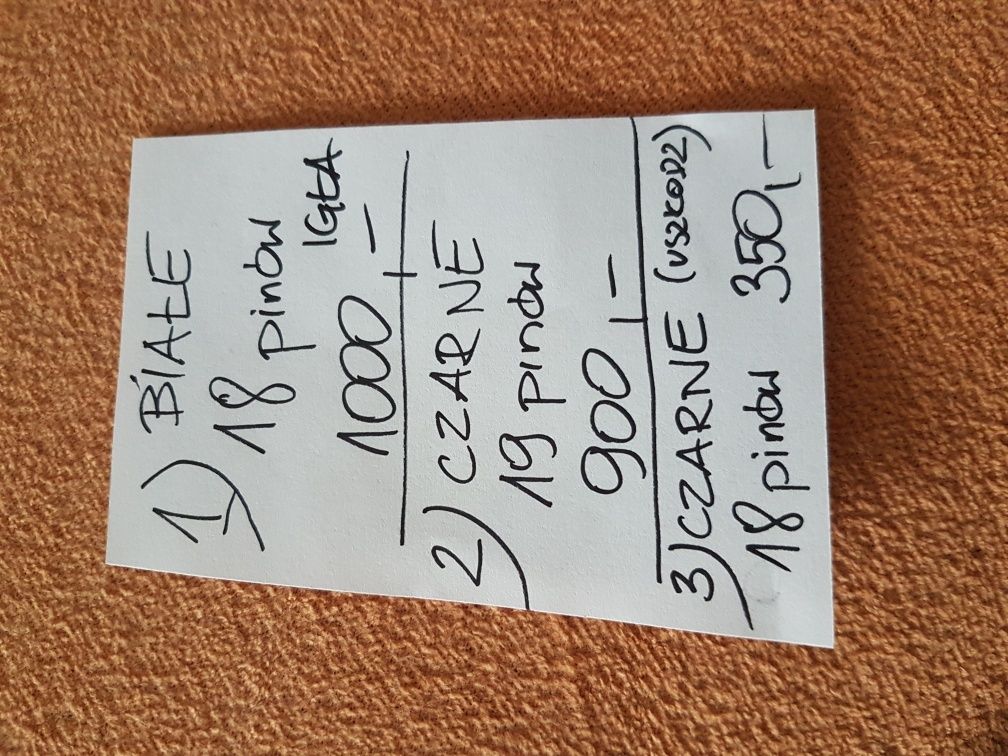 1) BIAŁE
18 pinów
IGŁA
1000,-
2) CZARNE
19 pinów
900,-
3) CZARNE (USZKODZ)
18 pinów 350,-